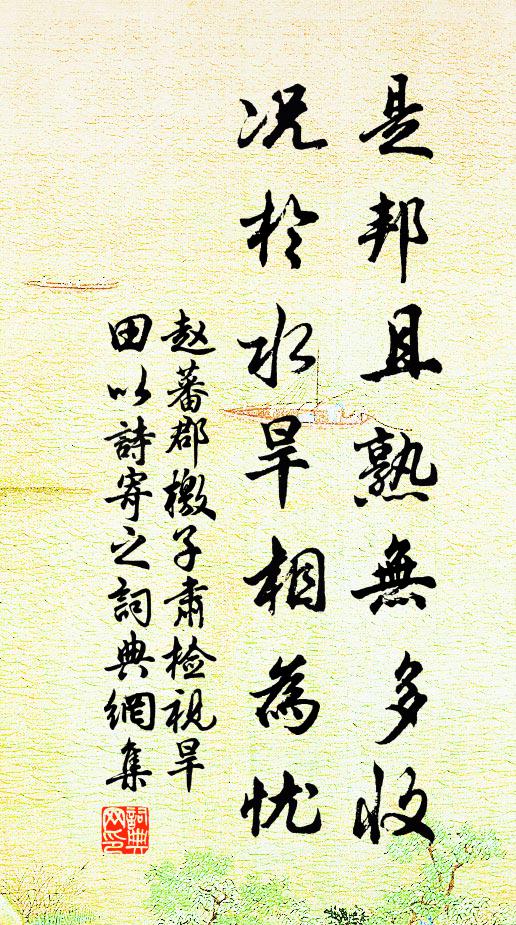 是邦且熟無多收
况於水旱相為忧
赵蕃郡檄子肃检視旱
田以詩寄之詞典網集
詞典
网印